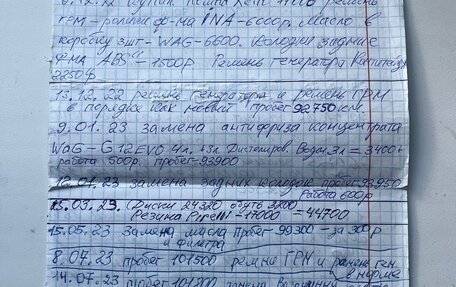 ГРМ - ролики ф-ма INA - 6000р. Масло в
коробку 3шт - WAG - 6600. Колодки задние
ф-ма ABS - 1500р Ремень генератора
2250р
13.12.22 ремень генератора и ремень ГРМ
в порядке пробег 92750 км.
9.01.23 замена антифриза концентрата
WAG - G12EVO 4л. +3л Дистилиров. Вода 3л = 3400+
работа 500р. пробег-93900
замена задних колодок пробег 93950
Работа 600р
13.03.23. (Диски 24320 обуть 3200
Резина Pirelli - 17000 = 44700
15.05.23 Замена масла пробег 99300 - за 300р
и фильтра
8.07.23 пробег 101500 ремне ГРМ и ремень ген
в норме
14.07.23 пробег 101700